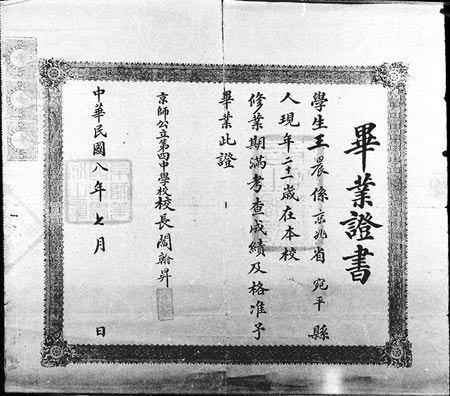 畢業證書
學生王農係京兆省宛平縣
人現年二十一歲在本校
修業期滿考查成績及格准予
畢業此證
京師公立第四中學校校長閻翰昇
中華民國八年七月　日